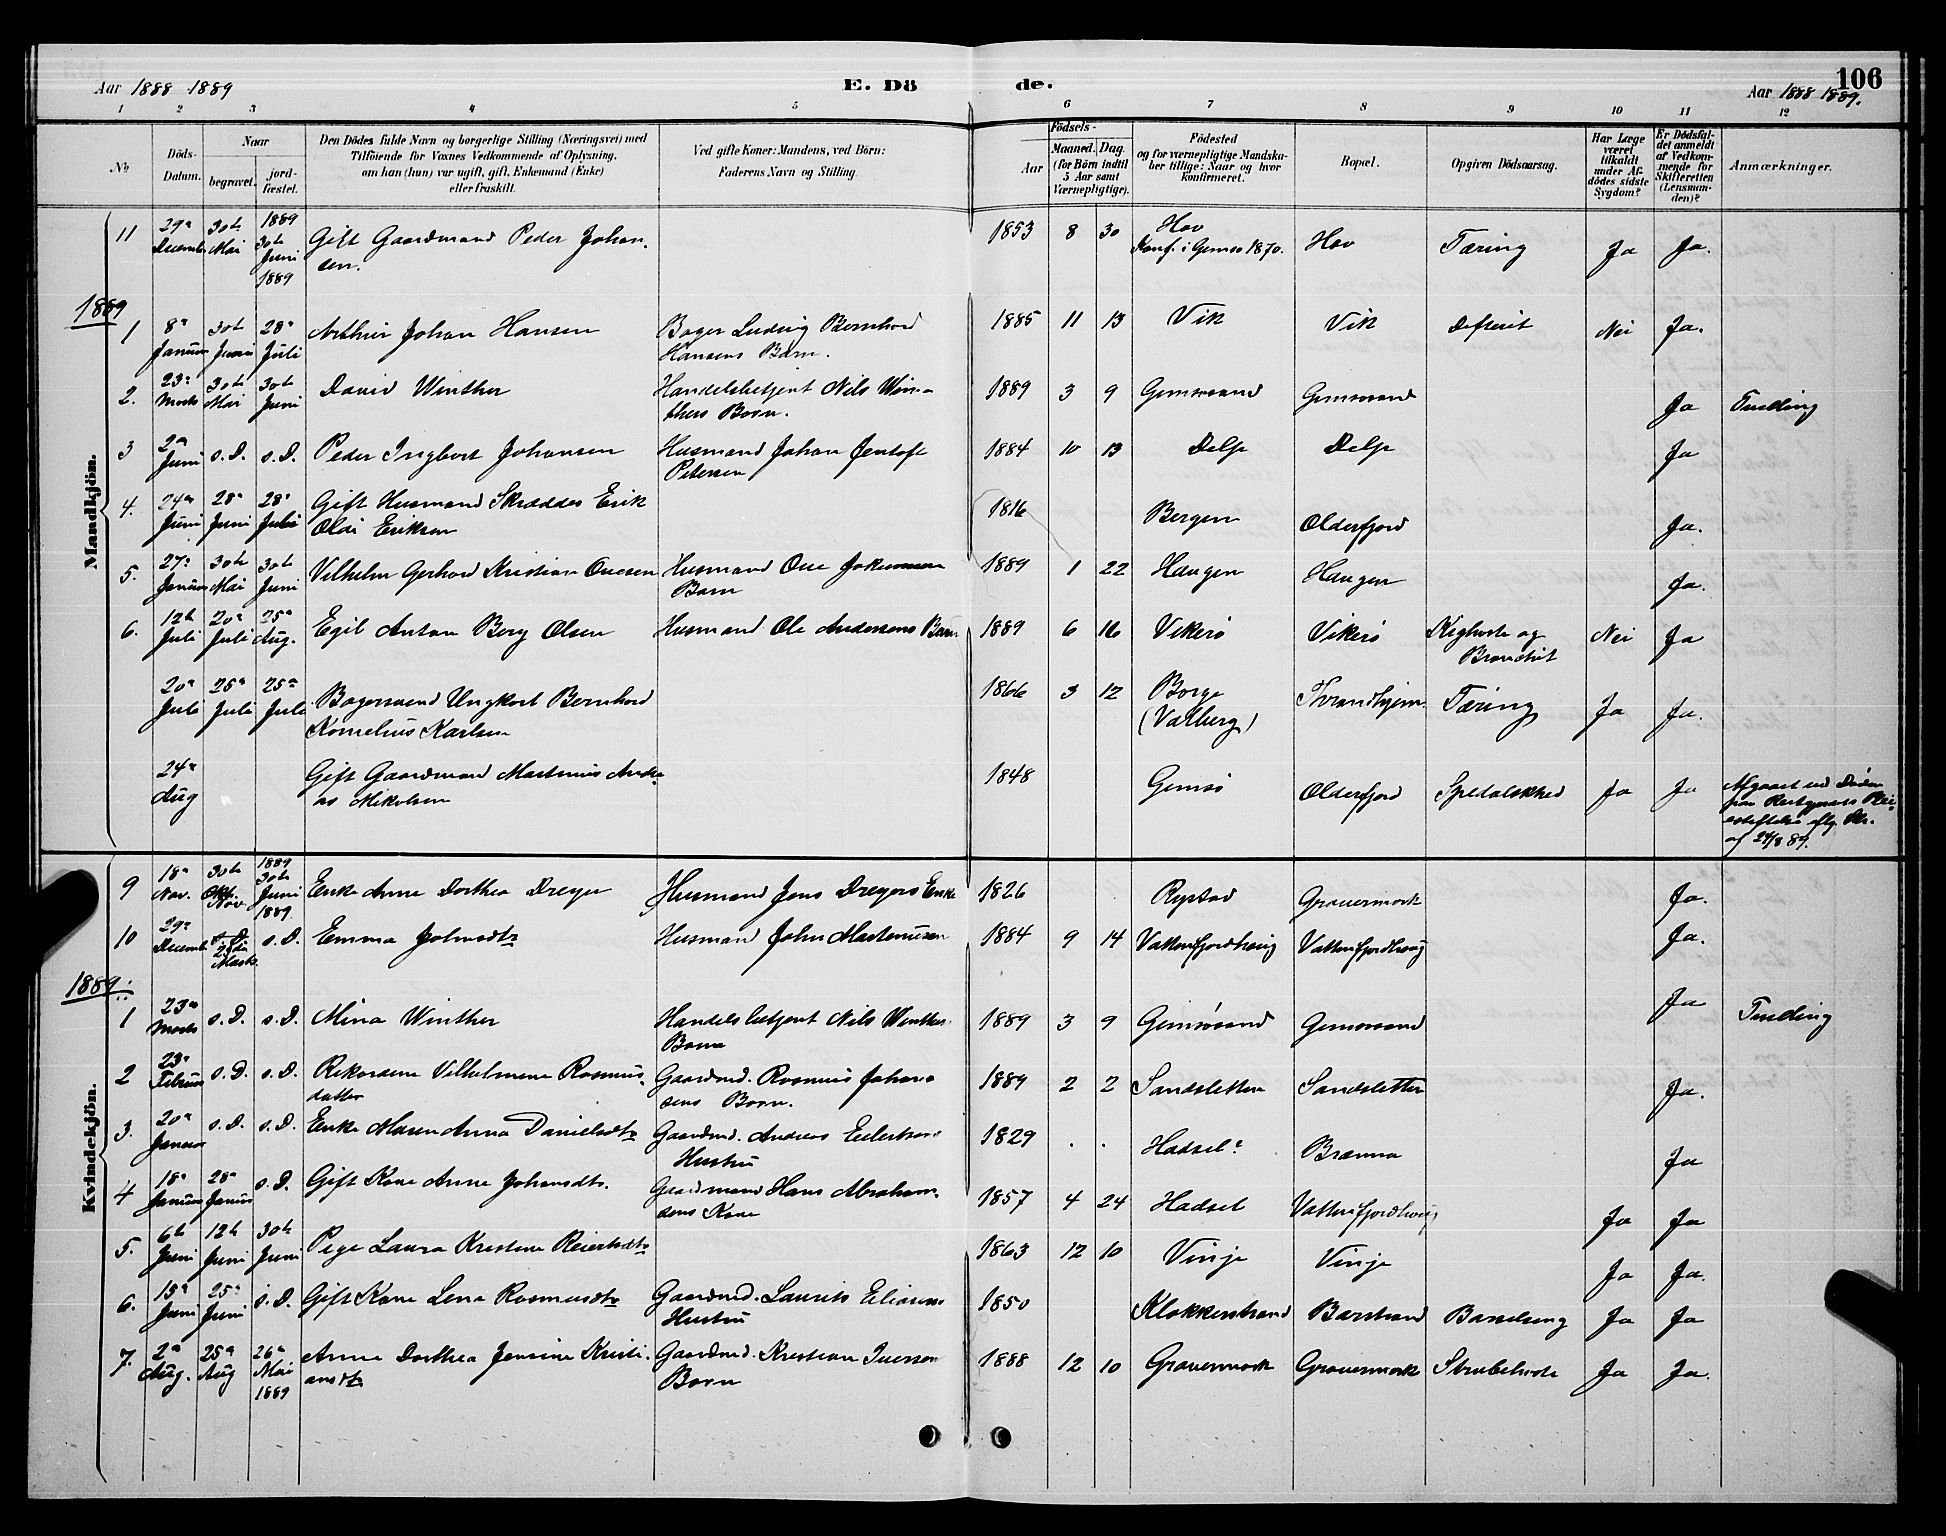 Aar 1888 1889
E. Dö
de.
Aar 1888 1889.
106
1 2 3 4 5 6 7 8 9 10 11 12
No
Döds-Datum.
Naar
begravet.
jord-fæstet.
Den Dödes fulde Navn og borgerlige Stilling (Næringsvei) med
Tilföiende for Voxnes Vedkommende af Oplysning,
om han (hun) var ugift, gift, Enkemand (Enke)
eller fraskilt.
Ved gifte Koner: Mandens, ved Börn:
Faderens Navn og Stilling.
Födsels-
Aar
Maaned. Dag.
(for Börn indtil
5 Aar samt
Værnepligtige).
Födested
og for værnepligtige Mandska-
ber tillige: Naar og hvor
konfirmeret.
Bopæl.
Opgiven Dödsaarsag.
Har Læge
været
tilkaldt
under Af-
dödes sidste
Sygdom?
Er Dödsfal-
det anmeldt
af Vedkom-
mende for
Skifteretten
(Lensman-
den)?
Anmærkninger.
Mandkjön.
11 29de Decemb. 30te Mai 1889 30te Juni 1889 Gift Gaardmand Peder Johan-
sen. 1853 8 30 Hov
Konf. i Gimsø 1870. Hov Tæring Ja Ja.
1889
1 8de Januar 30te Juni 28de Juli Arthur Johan Hansen Bager Ludvig Bernhard
Hansens Barn. 1885 11 13 Vik Vik Difterit Nei Ja.
2. 23de Marts 30te Mai 30te Juni David Winther Handelsbetjent Nils Win-
thers Barn. 1889 3 9 Gimsøsand Gimsøsand Ja Tvilling
3 2den Juni s.D. s.D. Peder Ingbart Johansen Husmand Johan Jentoft
Petersen 1884 10 13 Delp Delp Ja
4. 24de Juni 28de Juni 28de Juli Gift Husmand Skrædder Erik
Oldi Eriksen 1816 Bergen Olderfjord Ja.
5. 27de Januar 30te Mai 30te Juni Vilhelm Gerhard Kristian Ovesen Husmand Ove
Barn 1889 1 22 Haugen Haugen Ja.
6. 12te Juli 20de Juli 25de Aug. Egil Anton Berg Olsen Husmand Ole Andersens Barn 1889 6 16 Vikerø Vikerø Kighoste og
Bronchit Nei Ja
20de Juli 25de Juli 25de Juli Bagersvend Ungkarl Bernhard
Kornelius Karlsen 1866 3 12 Borge
(Valberg) Throndhjem. Tæring Ja Ja.
24de Aug Gift Gaardmand Martinus Andre-
as Mikalsen 1848 Gimsø Olderfjord Spedalskhed Ja Ja Afgaaet ved Døden
fra Reitgjærdets Plei-
estiftelse iflg. Skr.
af 24/8 89.
Kvindekjön.
9 18de Nov. 30te Nov. 1889 30te Juni 1889. Enke Anne Dorthea Dreyer Husmand Jens Dreyers Enke 1826 Rystad Gravermark Ja.
10 29de Decemb. s.D. Marts. s.D. Emma Johnsdtr Husmand John Martinusen 1884 9 14 Vatterfjordhaug Vatterfjordhaug Ja.
1889:
1 23de Marts s.D. s.D. Mina Winther Handelsbetjent Nils Winthers
Barn 1889 3 9 Gimsøsand Gimsøsand Ja Tvilling
2 23de Februar s.D. s.D. Rikardine Vilhelmine Rasmus-
datter Gaardmd. Rasmus Johan-
sens Barn. 1889 2 2 Sandsletten Sandsletten Ja.
3. 20de Januar s.D. s.D. Enke Maren Anna Danielsdtr Gaardmd. Andreas Eilertsens
Hustru 1829 . . Hadsel? Brænna Ja
4 18de Januar 28de Januar s.D. Gift Kone Anne Johansdtr. Gaardmand Hans Abraham-
sens Kone 1857 4 24 Hadsel Vatterfjordhaug Ja Ja
5. 6te Juni 12te Juni 30te Juni Pige Laura Kristine Reiertsdtr 1863 12 10 Vinje Vinje Ja Ja.
6. 15de Juni 25de Juni s.D. Gift Kone Lena Rasmusdtr Gaardmd. Laurits Eliasens
Hustru 1850 Klokkerstrand Barstrand Barselseng Ja Ja
7. 2den Aug. 25de Aug 26de Mai 1889 Anne Dorthea Jensine Kristi-
ansdtr Gaardmd. Kristian Iversen
Barn 1888 12 10 Gravermark Gravermark Strubehoste Ja Ja.